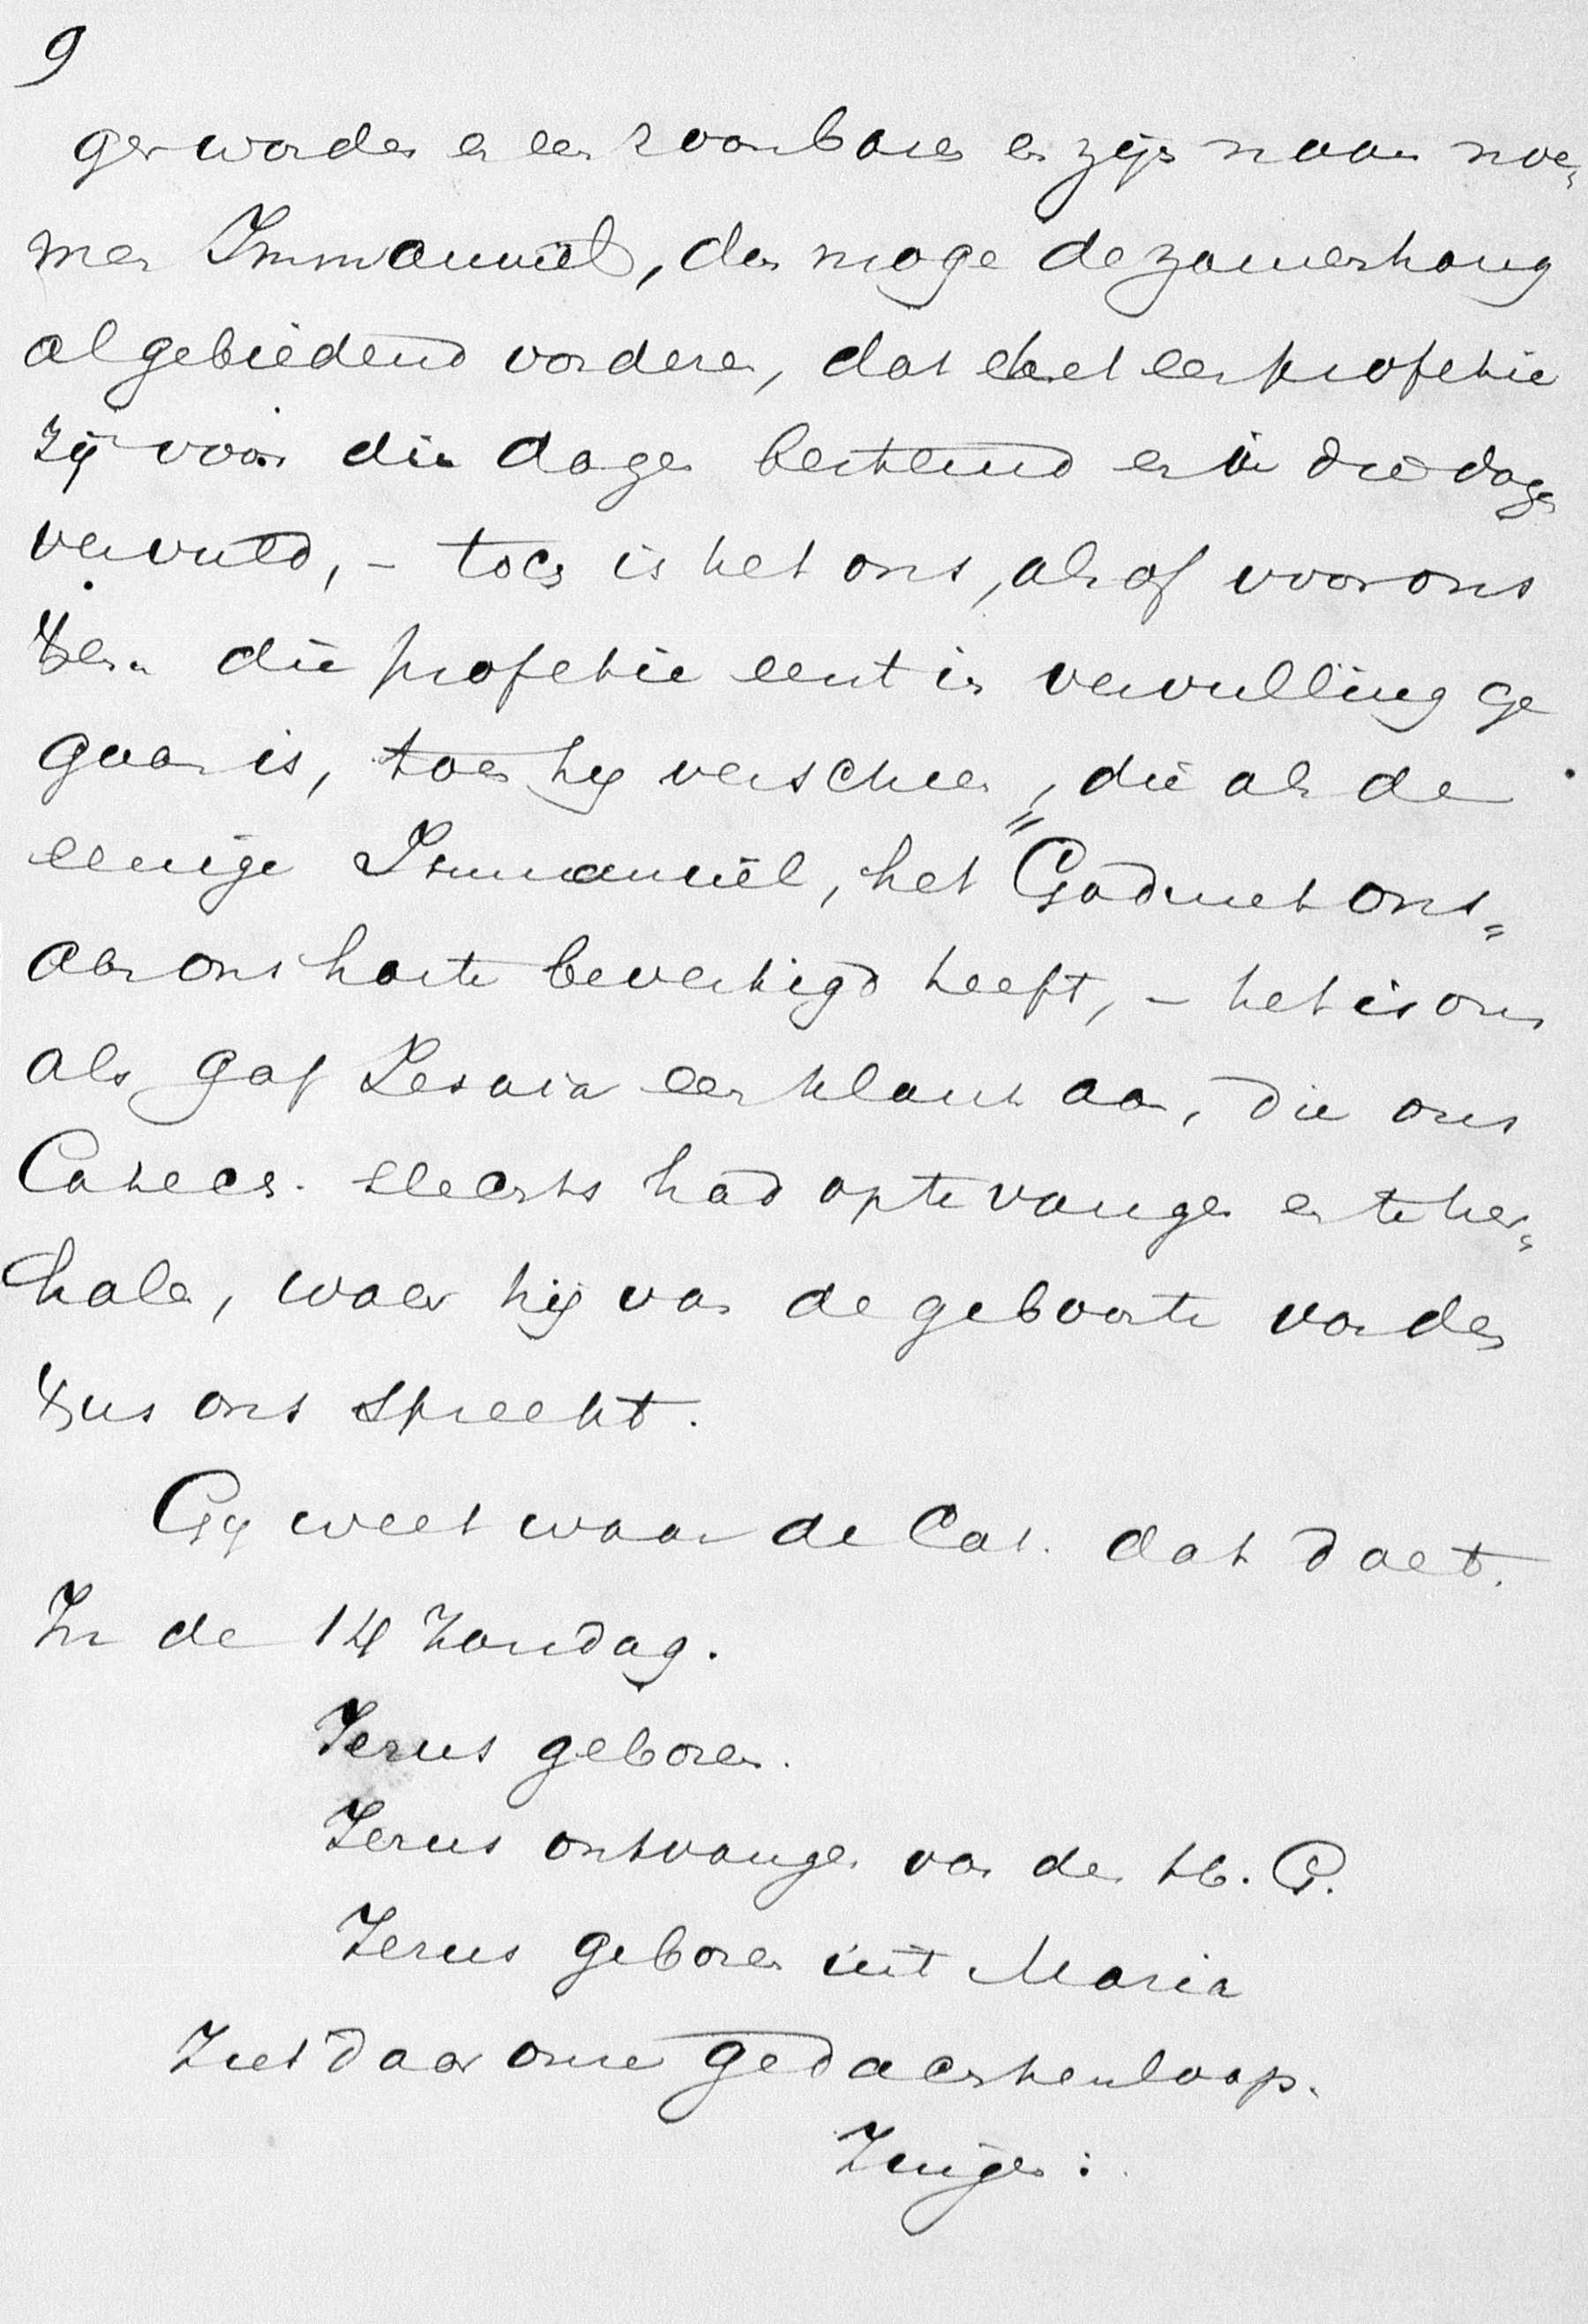 9
ger worden en een zoon baren en zijn naam noe=
men Immanuël, dan moge de zamenhang
al gebiedend vorderen, dat het een profetie
zij voor die dagen bestemd en in die dagen
vervuld, – toch is het ons, alsof voor ons
die profetie eerst in vervulling ge
gaan is, toen hij verscheen, die als de
eenige Immanuël, het "God met ons"
aan ons harte bevestigd heeft, – het is ons
als gaf Jesaia een klank aan, die ons
Catech. slechts had op te vangen en te her=
halen, waar hij van de geboorte van den
ons spreekt.
Gij weet waar de Cat. dat doet.
In de 14 Zondag.
Jezus geboren.
Jezus ontvangen van den H. G.
Jezus geboren uit Maria
Ziet daar onze gedachtenloop.
Zingen: